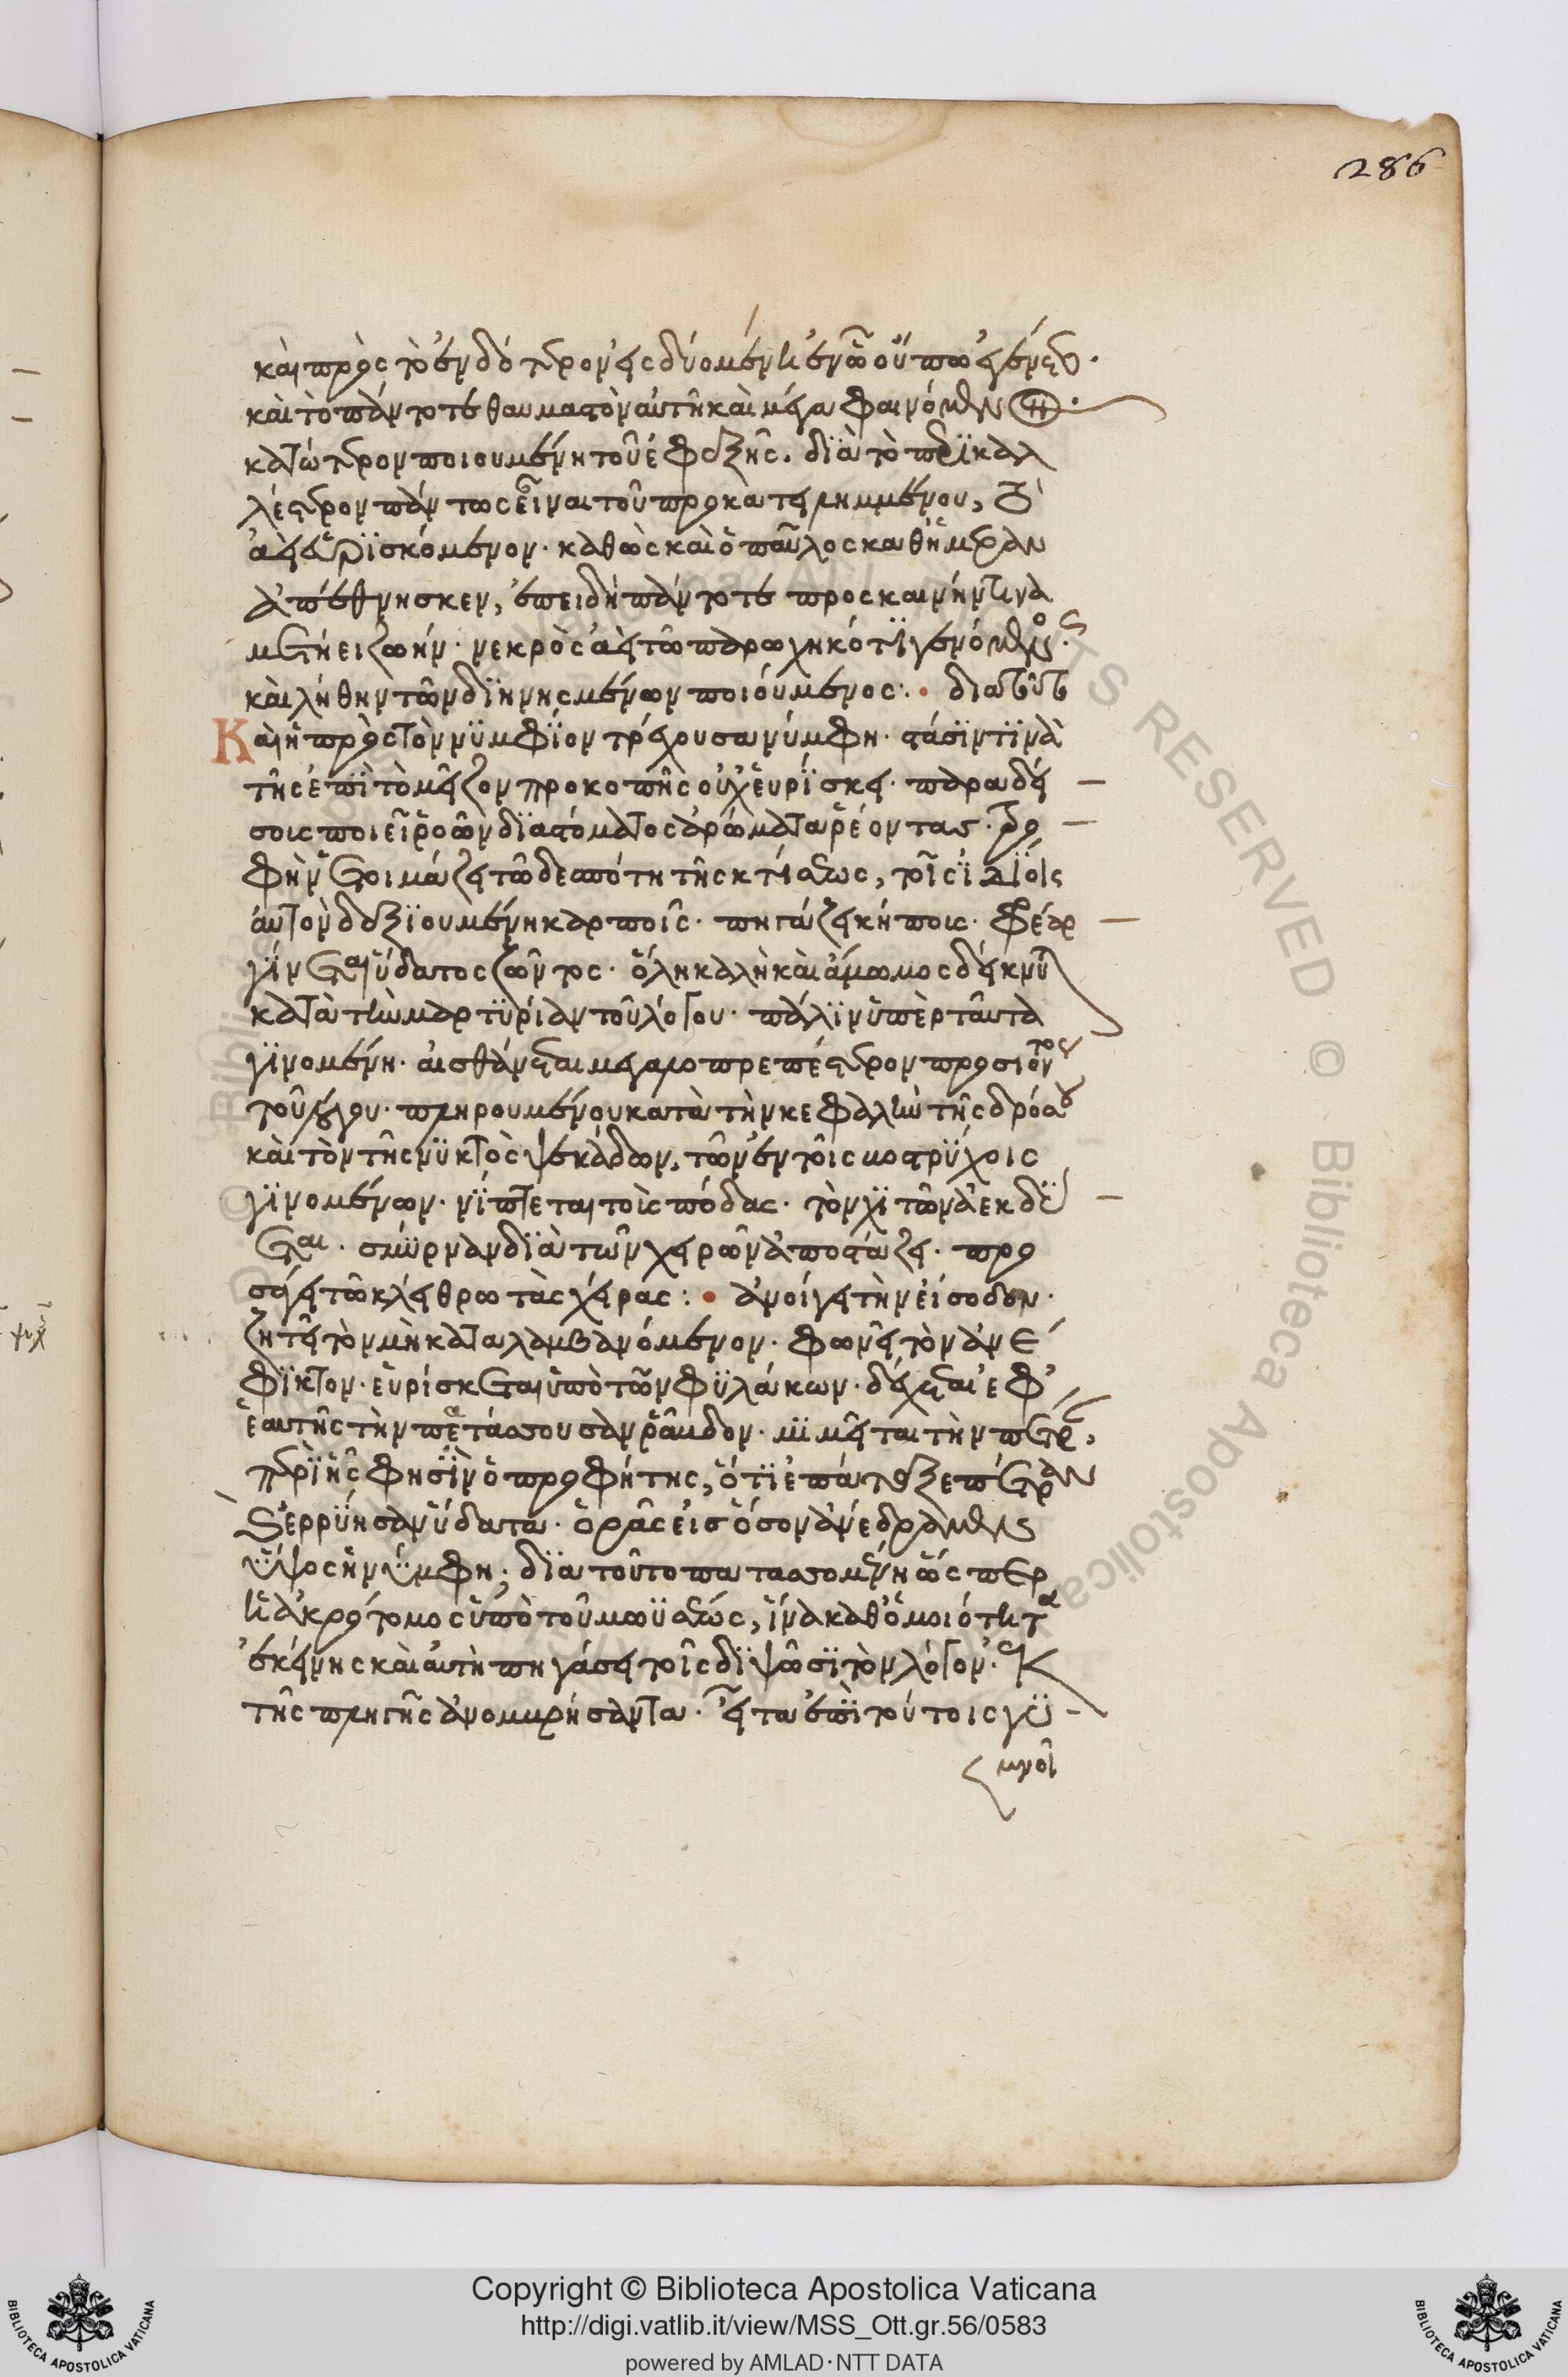 286
καὶ πρὸς τὸ ἐνδότερον εἰσδυομένη ἐν ᾧ οὔπω ἐγένετο·
καὶ τὸ πάντοτε θαυμαστὸν αὐτῆ καὶ μέγα φαινόμενον
κατώτερον ποιουμένη τοῦ ἐφεξῆς. διὰ τὸ περικαλ
λέστερον πάντως εἶναι τοῦ προκατειλημμένου, τὸ
ἀεὶ εὑρισκόμενον· καθὼς καὶ ὁ παῦλος καθ' ἡμέραν
ἀπέθνησκεν, ἐπειδὴ πάντοτε πρὸς καινήν τινα
μετήει ζωήν· νεκρὸς ἀεὶ τῶ παρωχηκότι γενόμενος·
καὶ λήθην τῶν διηνησμένων ποιούμενος:· διατοῦτο
Καὶ ἡ πρὸς τὸν νυμφίον τρέχουσα νύμφη· στάσιν τινὰ
τῆς ἐπὶ τὸ μεῖζον προκοπῆς οὐχ εὑρίσκει· παραδεί
σοις ποιεῖ ῥοῶν διαστόματος ἀρώματα ῥέοντας· τρο
φὴν ἑτοιμάζει τῶ δεσπότη τῆς κτίσεως, τοῖς ἰδίοις
αὐτὸν δεξιουμένη καρποῖς· πηγάζει κήποις· φρέαρ
γίνεται ὕδατος ζῶντος· ὅλη καλὴ καὶ ἄμωμος δείκνυται
κατὰ τὴν μαρτυρίαν τοῦ λόγου· πάλιν ὑπὲρ ταῦτα
γινομένη· αἰσθάνεται μεγαλοπρεπέστερον προσιόντος
τοῦ λόγου· πληρουμένου κατὰ τὴν κεφαλὴν τῆς δρόσου
καὶ τὸν τῆς νυκτὸς ψεκάδων, τῶν ἐν τοῖς βοστρύχοις
γινομένων· νίπτεται τοὶς πόδας· τὸν χιτῶνα ἐκδύ
εται· σμύρναν διὰ τῶν χειρῶν ἀποστάζει· προ
σάγει τῶ κλείθρω τὰς χεῖρας:· ἀνοίγει τὴν εἴσοδον·
ζητεῖ τὸν μὴ καταλαμβανόμενον· φωνεῖ τὸν ἀνέ
φικτον· εὑρίσκεται ὑπὸ τῶν φυλάκων· δέχεται ἐφ'
ἑαυτῆς τὴν πατάσσουσαν ῥάβδον· μιμεῖται τὴν πέτραν,
περὶ ἧς φησὶν ὁ προφήτης, ὅτι ἐπάταξε πέτραν
καὶ ἐρρύησαν ὕδατα· ὁρᾶς εἰς ὅσον ἀνέδραμεν
ὕψος ἡ νύμφη· διατοῦτο πατασσομένη ὥσπερ
ἡ ἀκρότομος ὑπὸ τοῦ μωϋσέως, ἵνα καθ' ὁμοιότητα
ἐκείνης καὶ αὐτὴ πηγάση τοῖς διψῶσι τὸν λόγον· ἐκ
τῆς πληγῆς ἀνομβρήσαντα· εἶτα ἐπὶ τούτοις γυ
μνοῖ